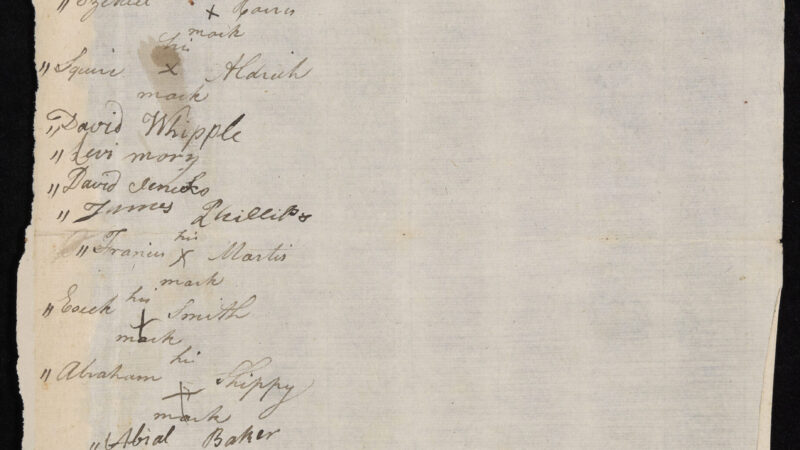 " Ezekiel x Harris
mark
his
" Squire x Aldrich
mark
" David Whipple
" Levi mory
" David Jencks
" James Phillips
his
" Francis X Martis
mark
his
" Esek X Smith
mark
his
" Abraham X Shippy
mark
" Abial Baker